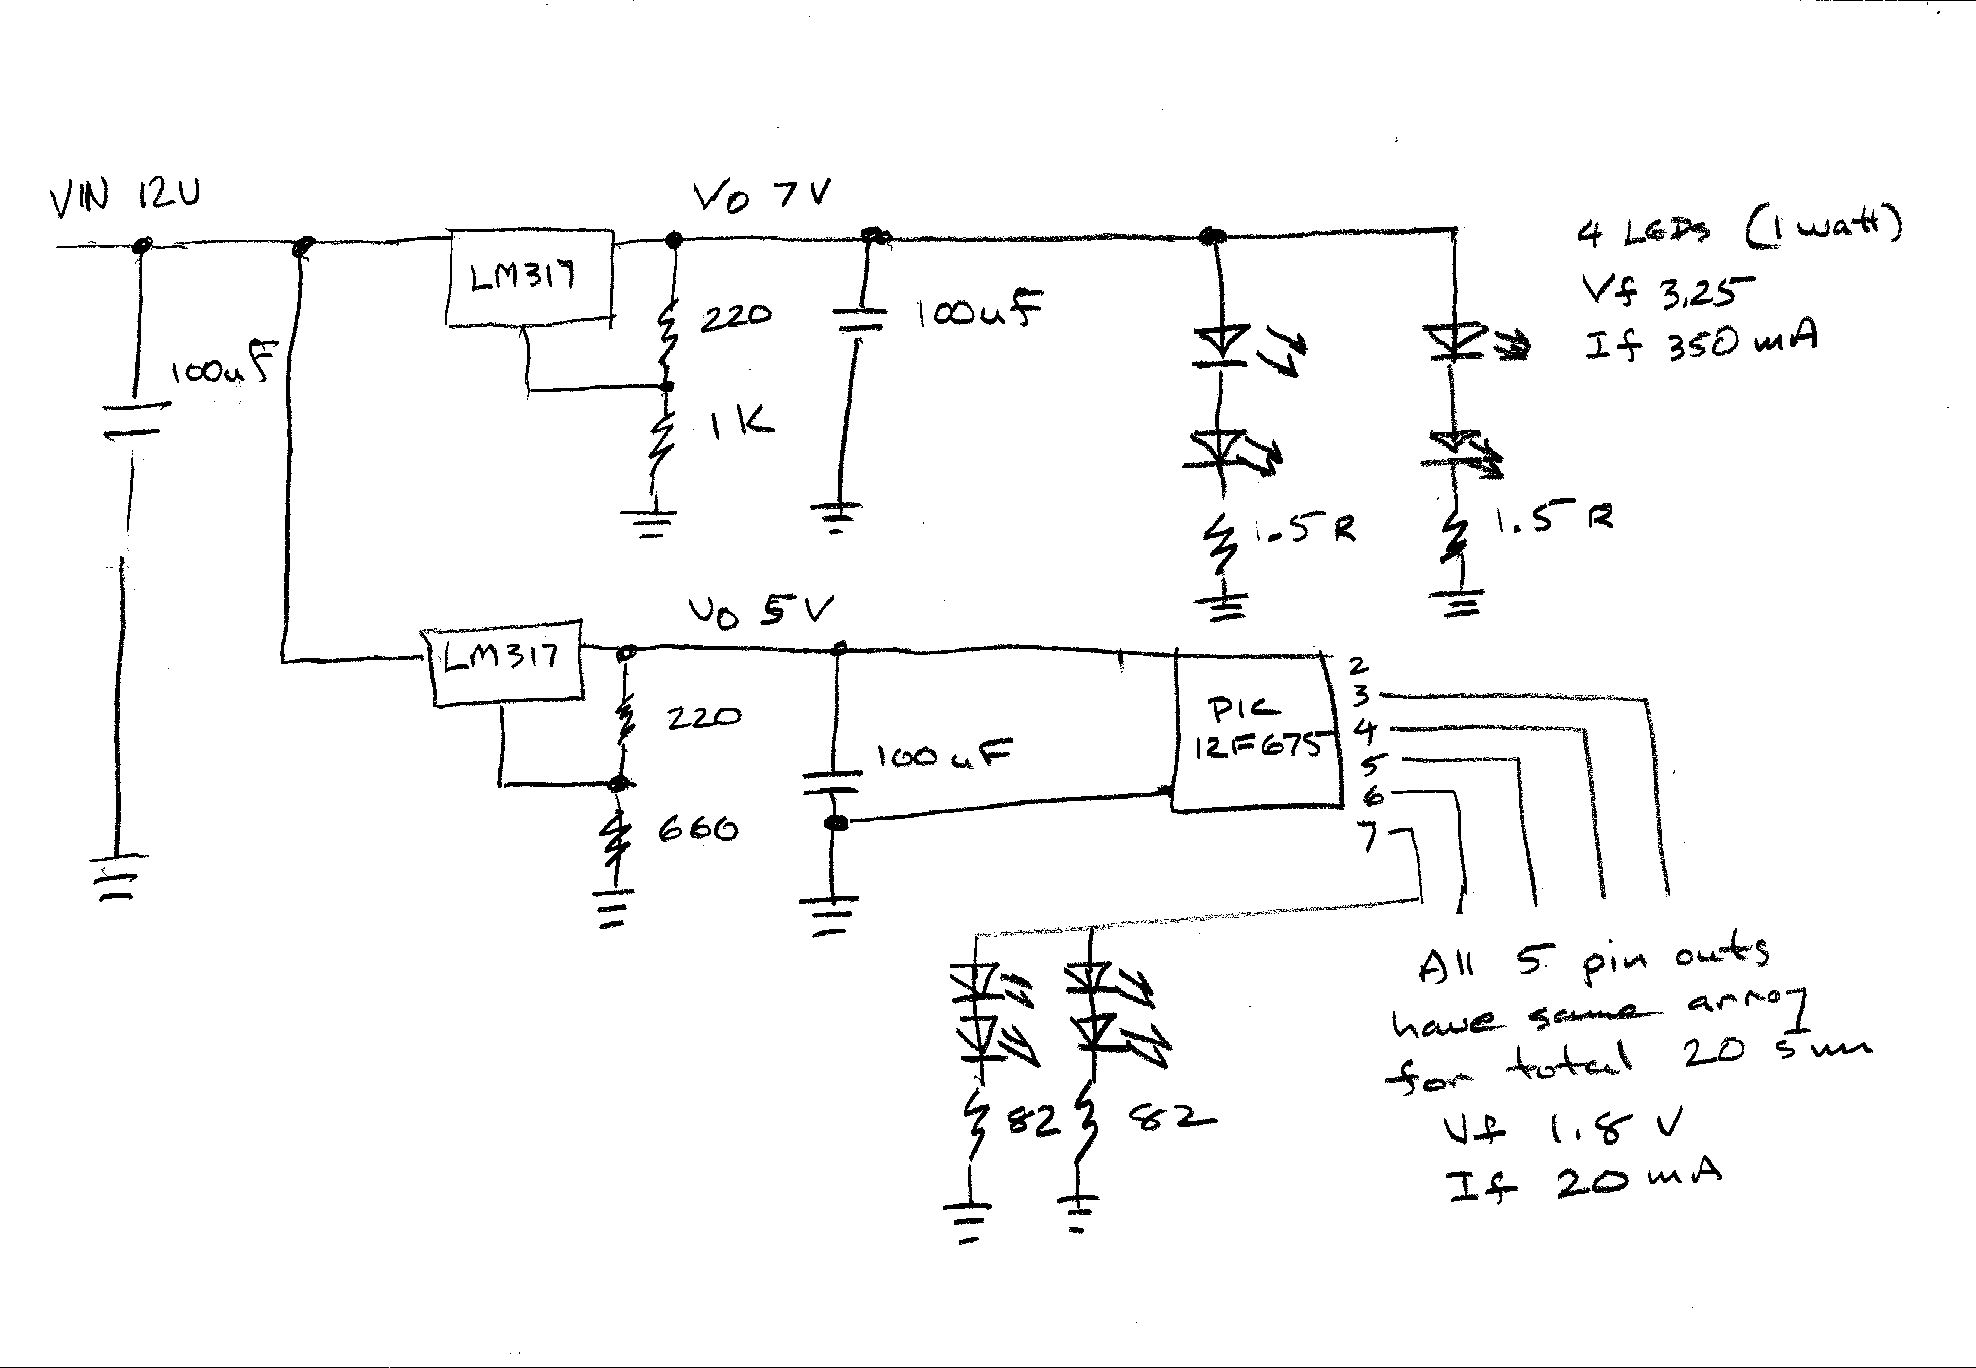 VIN 12V
Vo 7V
4 LEDs (1 watt)
LM317
Vf 3.25
220
100uF
If 350 mA
100uF
1K
1.5R
1.5R
Vo 5V
LM317
2
3
220
PIC
12F675
4
100uF
5
6
660
7
All 5 pin outs
have same array
for total 20 5mm
82
82
Vf 1.8 V
If 20 mA